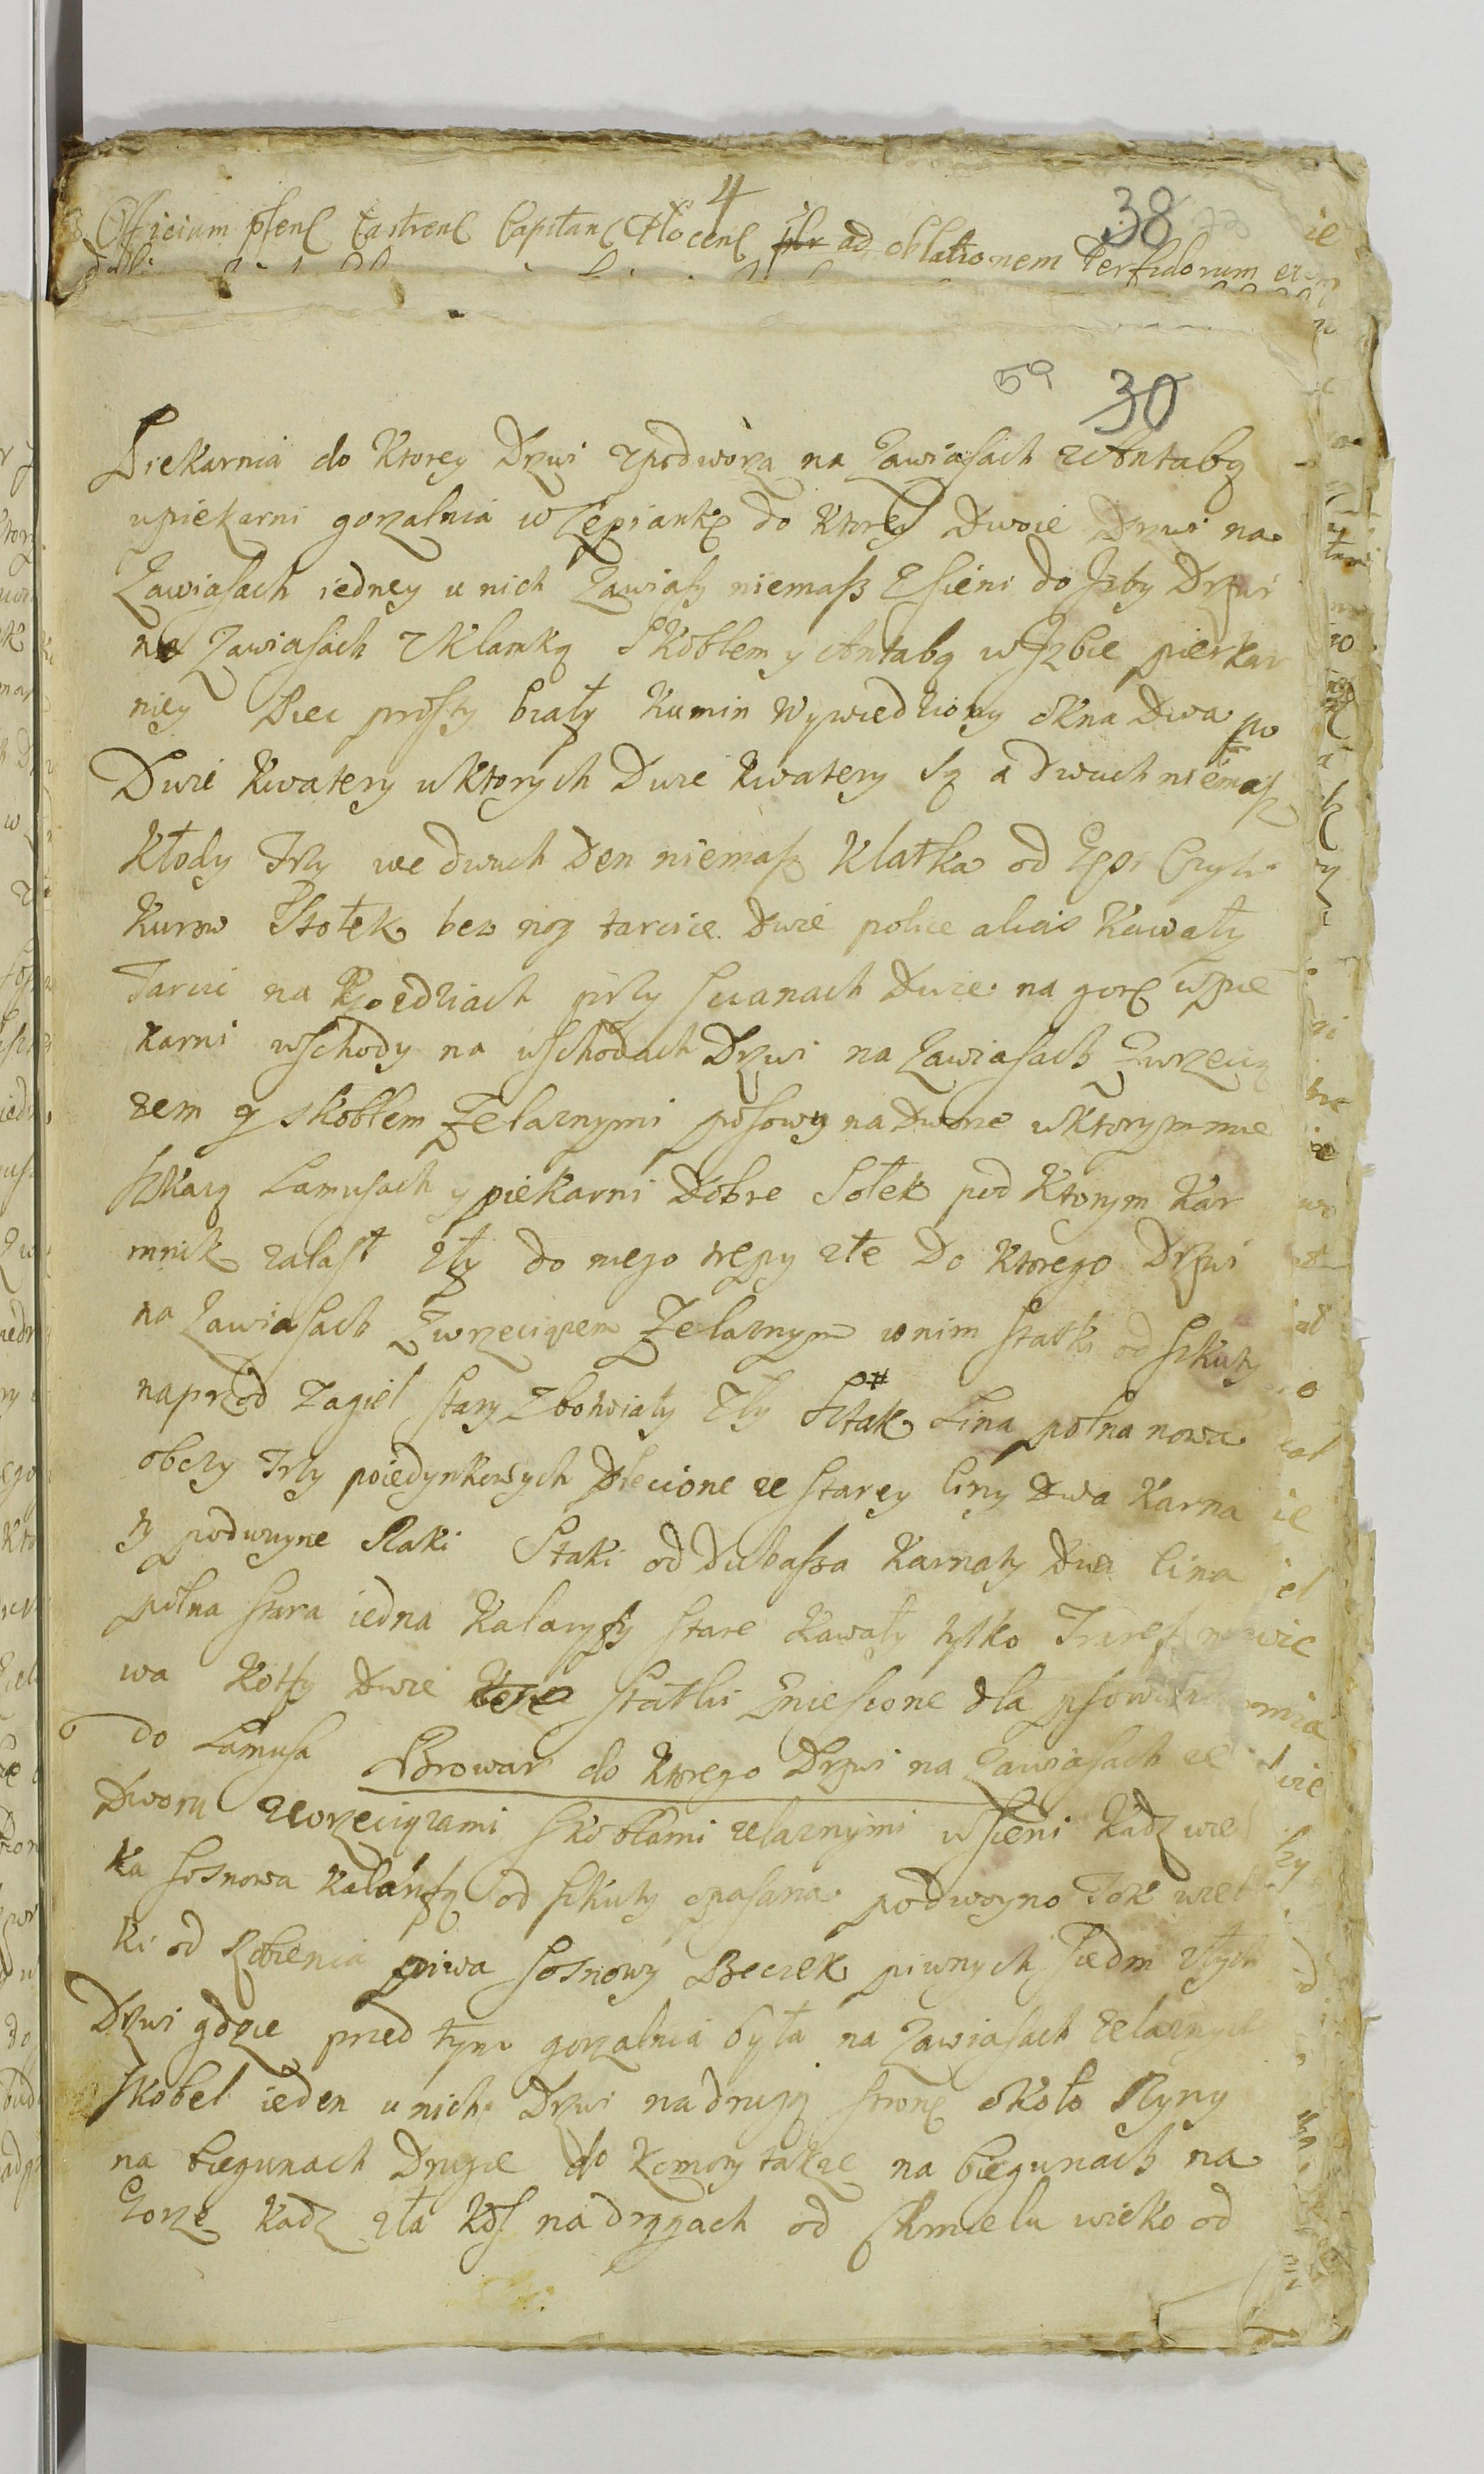 4
38
Officium pſenſ Caſtrenſ Capitanſ Płocenſ ad oblationem Perfidorum et
5a 30
Piekarnia do Ktorey Drzwi zpodworza na Zawiaſach zAntabą
upiekarni gorzalnia w Lepiankę do Ktorey Dwoie Drzwi na
Zawiaſach iedney u nich Zawiaſy niemaſz Zſieni do Izby Drzwi
na Zawiaſach zKlamką Skoblem y Antabą wIzbie piekar
niey Piec proſty biały Kumin Wywiedziony okna Dwa po
Dwie Kwatery wktorych Dwie Kwatery ſą a dwuch niemaſz
Kłody Trzy we dwuch Den niemaſz Klatka od
Kurow Stołek bez nog tarcice Dwie police alias Kawały
Tarcic na przy ſcianach Dwie na gorę wpie
karni wſchody na wſchodach Drzwi na Zawiaſach Zwrzecią
zem y skoblem Zelaznymi poſowy na Dworze wktorym mie
ſzkaią Lamuſach y piekarni Dobre Sołek pod Ktorym Kar
mnik zły do niego trepy złe Do Ktorego Drzwi
na Zawiaſach Zwrzeciązem Zelaznym w nim ſtatki od ſzkuty
naprzod Zagiel ſtary Zbotwiały Zły Sztak Lina połna nowa
obczy Trzy poiedynkowych Plecione ze ſtarey liny Dwa Karna
ty podwoyne Raki Staki od Dubaſsa Karnaty Dwa lina
połna ſtara iedna ſtare Kawały tylko
wa Kotfy Dwie ſtatki Znieſione dla
do Lamuſa Browar do Ktorego Drzwi na Zawiaſach ze
Dworu zwrzeciązami ſkoblami zelaznymi wſieni Kadz wiel
ka ſoſnowa od ſzkuty opaſana podwoyno Tok wiel
ki od Robienia piwa ſoſnowy Beczek piwnych ſiedm złych
Drzwi gdzie przed tym gorzalnia była na Zawiaſach zelaznych
ſkobel ieden u nich Drzwi na drugą ſtronę około Ryny
na biegunach Drugie do Komory takze na biegunach na
Gorze Kadz zła Koſz na drągach od Chmielu wieko od